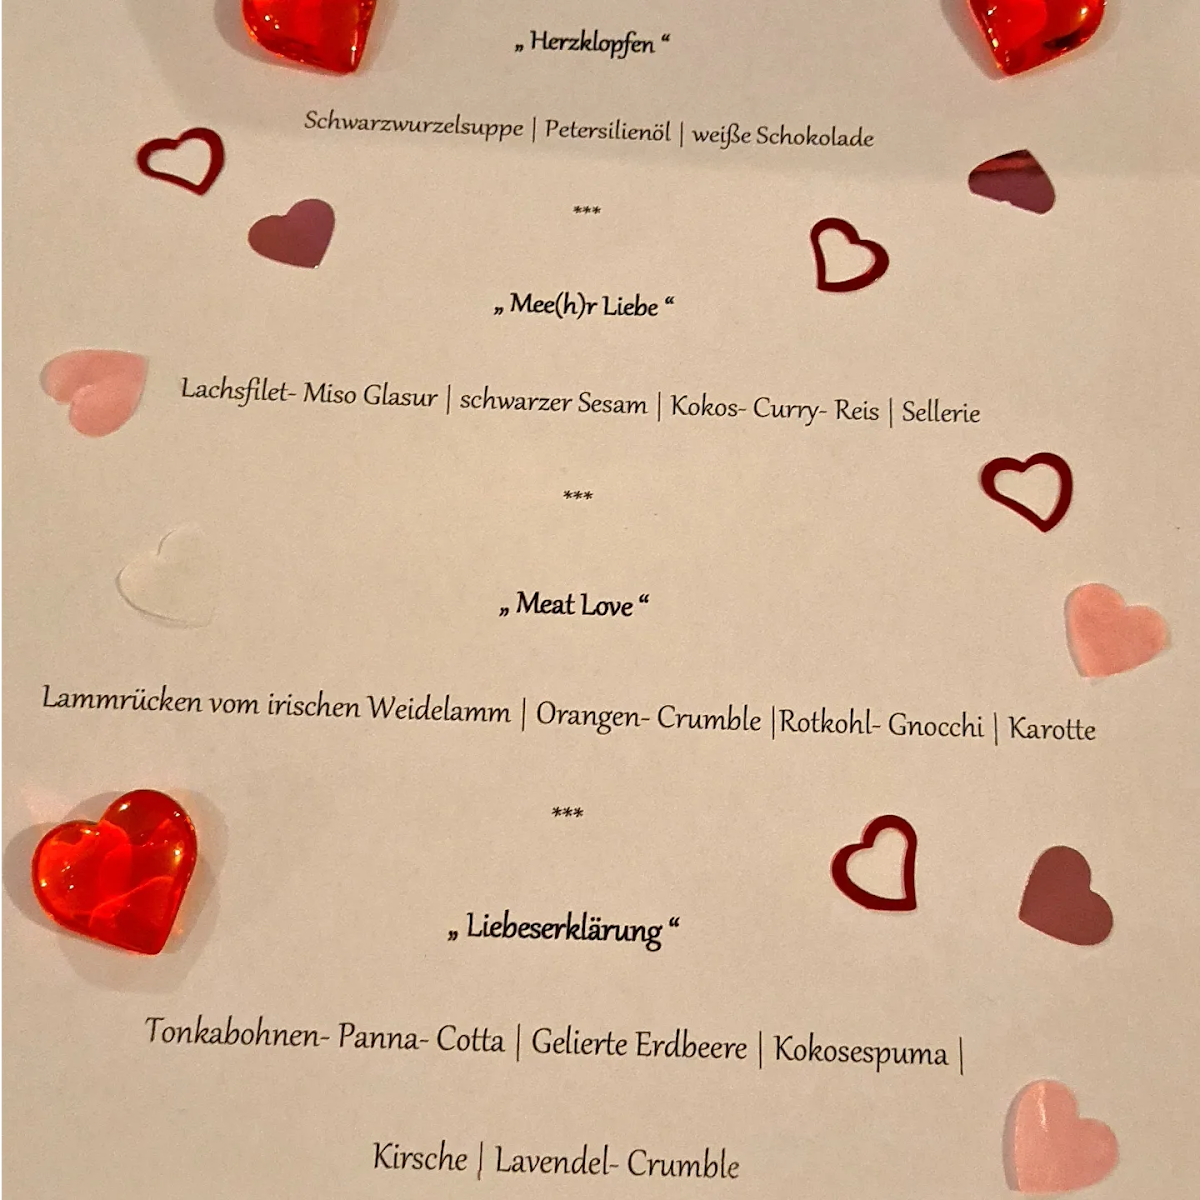 „ Herzklopfen “
Schwarzwurzelsuppe | Petersilienöl | weiße Schokolade
***
„ Mee(h)r Liebe “
Lachsfilet- Miso Glasur | schwarzer Sesam | Kokos- Curry- Reis | Sellerie
***
„ Meat Love “
Lammrücken vom irischen Weidelamm | Orangen- Crumble |Rotkohl- Gnocchi | Karotte
***
„ Liebeserklärung “
Tonkabohnen- Panna- Cotta | Gelierte Erdbeere | Kokosespuma |
Kirsche | Lavendel- Crumble